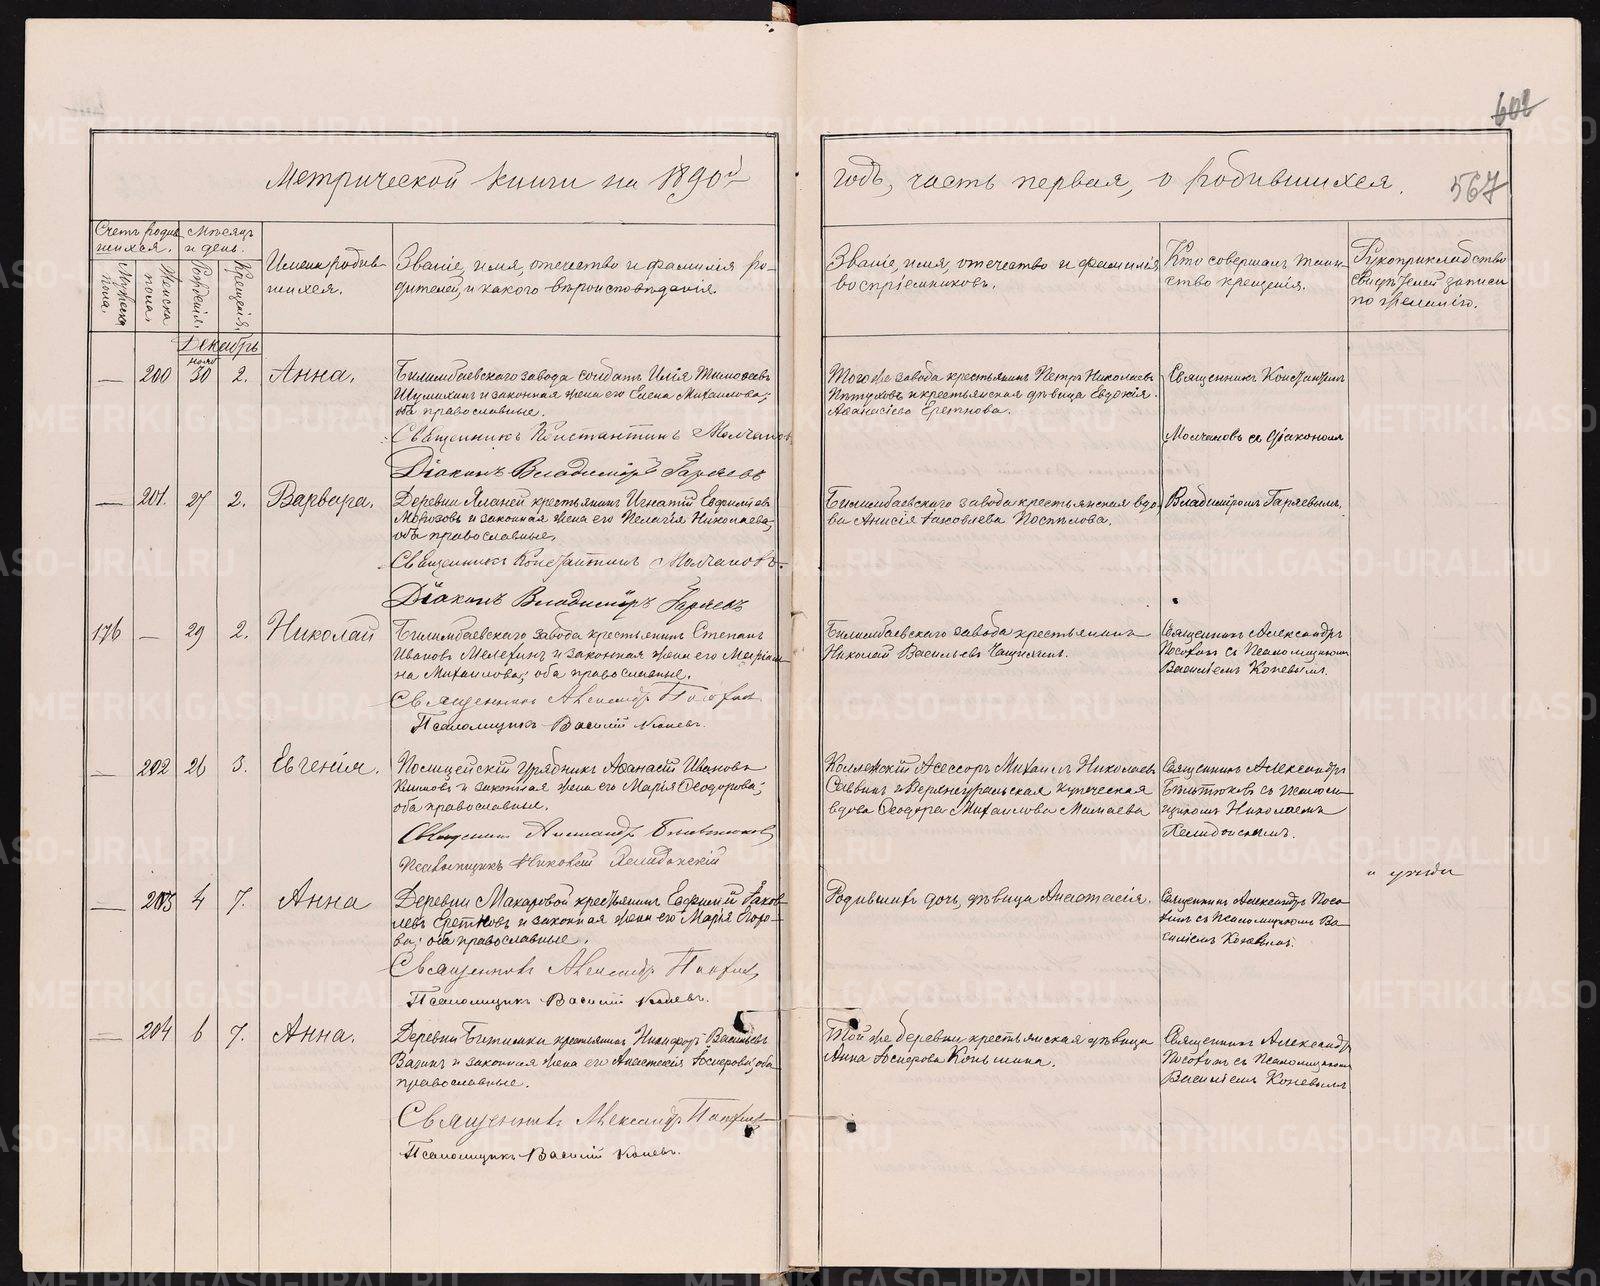 602
Метрической книги на 1890й
годъ, часть первая, о родившихся.
567
Счетъ родив-
шихся.
Мужеска пола.
Женска пола.
Мѣсяцъ
и день.
Рожденія.
Крещенія.
Имена родив-
шихся.
Званіе, имя, отчество и фамилія ро-
дителей, и какого вѣроисповѣданія
Званіе, имя, отчество и фамилія
воспріемниковъ.
Кто совершалъ таин-
ство крещенія.
Рукоприкладство
свидѣтелей записи
по желанію.
Декабрь
нояб
— 200 30 2. Анна.
Билимбаевскаго завода солдатъ Илія Тимоѳеевъ
Шушихинъ и законная жена его Елена Михаилова;
оба православные.
Священникъ Константинъ Молчановъ
Діаконъ Владиміръ Гаряевъ
Того же завода крестьянинъ Петръ Николаевъ
Пѣтуховъ и крестьянская дѣвица Евдокія
Аѳанасіева Еретнова.
Священникъ Константинъ
Молчановъ съ діакономъ
— 201. 27 2. Варвара.
Деревни крестьянинъ Игнатій
Морозовъ и законная жена его Пелагія Николаева;
оба православные.
Священникъ Константинъ Молчановъ.
Діаконъ Владиміръ Гаряевъ
Билимбаевскаго завода крестьянская вдо-
ва Анисія Іаковлева Поспѣлова.
Владиміромъ Гаряевымъ.
176 — 29 2. Николай
Билимбаевскаго завода крестьянинъ Степанъ
Ивановъ Мелехинъ и законная жена его
на Михаилова; оба православные.
Священникъ Александръ
Псаломщикъ Василій Коневъ.
Билимбаевскаго завода крестьянинъ
Николай Васильевъ
Священникъ Александръ
съ Псаломщикомъ
Василіемъ Коневымъ.
— 202 26 3. Евгенія.
Полицейскій Урядникъ Аѳанасій Ивановъ
Климовъ и законная жена его Марія Ѳеодорова;
оба православные.
Священникъ Александръ
Псаломщикъ Николай
Коллежскій Асессоръ Михаилъ Николаевъ
Саввинъ и Верхнеуральская купеческая
вдова Ѳеодора Михаилова Минаева
Священникъ Александръ
съ псалом-
щикомъ Николаемъ
— 203 4 7. Анна
Деревни Макаровой крестьянинъ Евфимій Іаков-
левъ Еретновъ и законная жена его Марія Егоро-
ва; оба православные.
Священникъ Александръ
Псаломщикъ Василій Коневъ.
Родившихъ дочь, дѣвица Анастасія.
Священникъ Александръ
съ Псаломщикомъ Ва-
силіемъ Коневымъ.
— 204 6 7. Анна.
Деревни Битимки крестьянинъ Никифоръ Васильевъ
Вагинъ и законная жена его Анастасія Іосифова; оба
православные.
Священникъ Александръ
Псаломщикъ Василій Коневъ.
Той же деревни крестьянская дѣвица
Анна Іосифова Коньшина.
Священникъ Александръ
съ Псаломщикомъ
Василіемъ Коневымъ
METRIKI.GASO-URAL.RU